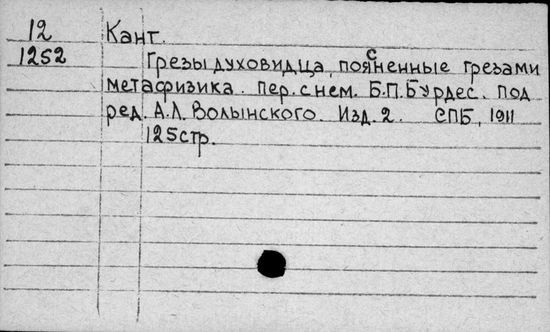 12 Кант.
1252 Грезы духовидца, поясненные грезами
метафизика. пер. с нем. Б.П. Бурдес. под
ред. А.Л. Волынского. Изд. 2. СПБ, 1911
125 стр.